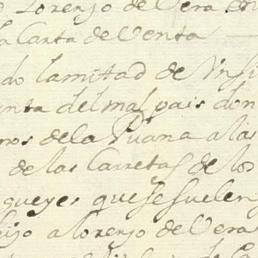 Lorenzo de Vera en
la Carta de Venta
do la mitad de Un si
enta del mal pais don
nos de la Puana a las
de las Carretas de los
gueyes que se suelen
eijo a lorenzo de Vera